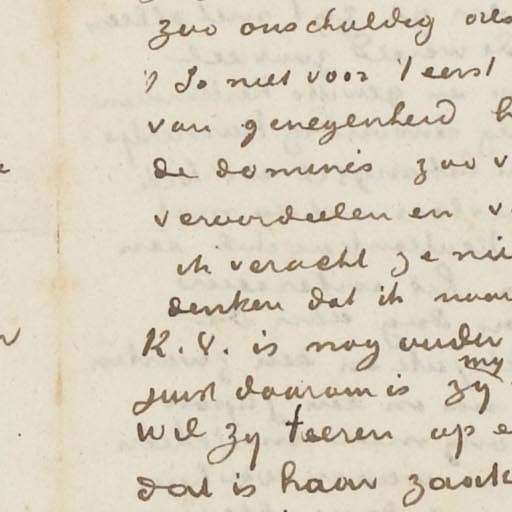 zoo onschuldig als
't Is niet voor 't eerst
van genegenheid h
de dominés zoo v
veroordeelen en v
ik veracht ze nie
denken dat ik naar
K.V. is nog ouder
my
juist daarom is zy
Wil zy teeren op e
dat is haar zaak